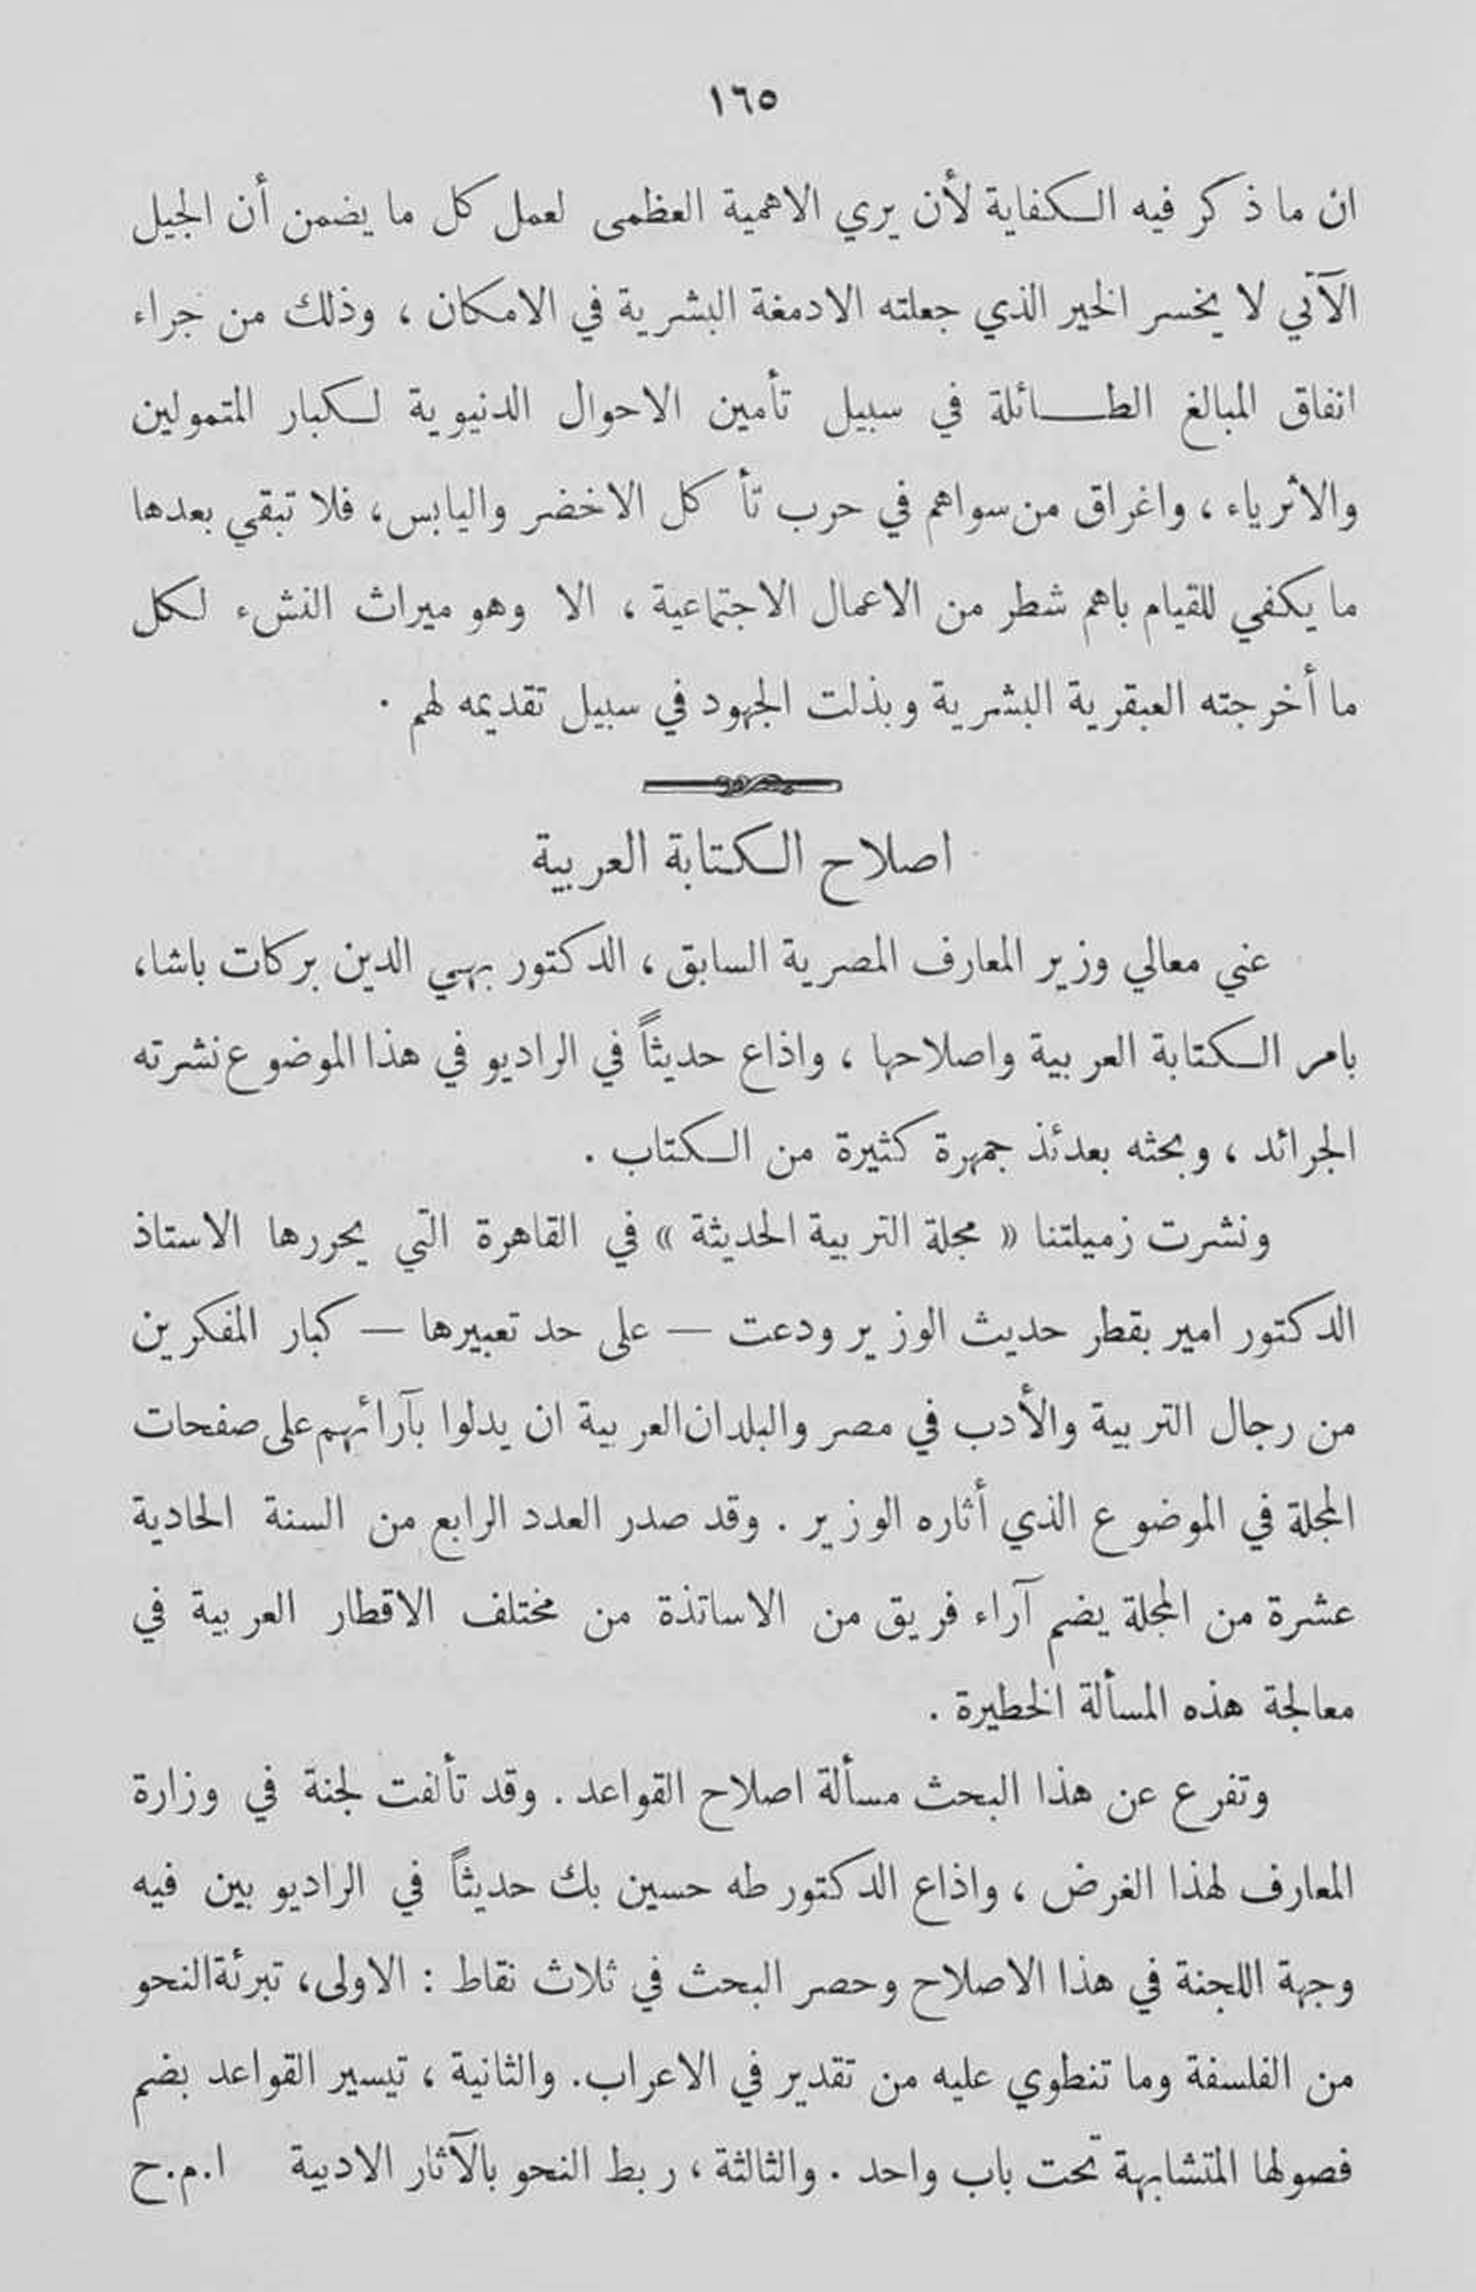 ١٦٥
ان ما ذكر فيه الكفاية لأن يري الاهمية العظمى لعمل كل ما يضمن أن الجيل
الآتي لا يخسر الخير الذي جعلته الادمغة البشرية في الامكان ، وذلك من جراء
انفاق المبالغ الطائلة في سبيل تأمين الاحوال الدنيوية لكبار المتمولين
والاثرياء ، واغراق من سواهم في حرب تأكل الاخضر واليابس، فلا تبقي بعدها
ما يكفي للقيام باهم شطر من الاعمال الاجتماعية ، الا وهو ميراث النشء لكل
ما أخرجته العبقرية البشرية وبذلت الجهود في سبيل تقديمه لهم .
اصلاح الكتابة العربية
عني معالي وزير المعارف المصرية السابق ، الدكتور بهي الدين بركات باشا،
بامر الكتابة العربية واصلاحها ، واذاع حديثاً في الراديو في هذا الموضوع نشرته
الجرائد ، وبحثه بعدئذ جمهرة كثيرة من الكتاب .
ونشرت زميلتنا « مجلة التربية الحديثة » في القاهرة التي يحررها الاستاذ
الدكتور امير بقطر حديث الوزير ودعت — على حد تعبيرها — كبار المفكرين
من رجال التربية والأدب في مصر والبلدان العربية ان يدلوا بآرائهم على صفحات
المجلة في الموضوع الذي أثاره الوزير . وقد صدر العدد الرابع من السنة الحادية
عشرة من المجلة يضم آراء فريق من الاساتذة من مختلف الاقطار العربية في
معالجة هذه المسألة الخطيرة .
وتفرع عن هذا البحث مسألة اصلاح القواعد . وقد تألفت لجنة في وزارة
المعارف لهذا الغرض ، واذاع الدكتور طه حسين بك حديثاً في الراديو بين فيه
وجهة اللجنة في هذا الاصلاح وحصر البحث في ثلاث نقاط : الاولى، تبرئة النحو
من الفلسفة وما تنطوي عليه من تقدير في الاعراب. والثانية ، تيسير القواعد بضم
فصولها المتشابهة تحت باب واحد . والثالثة ، ربط النحو بالآثار الادبية ا.م.ح